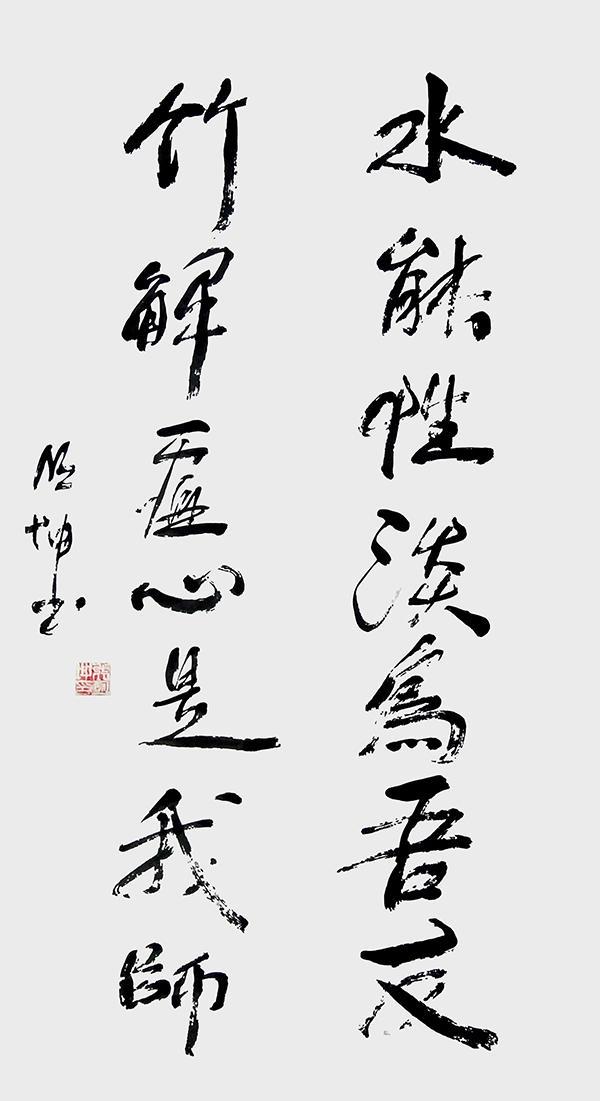 水能性淡為吾友
竹解虛心是我師
坤书